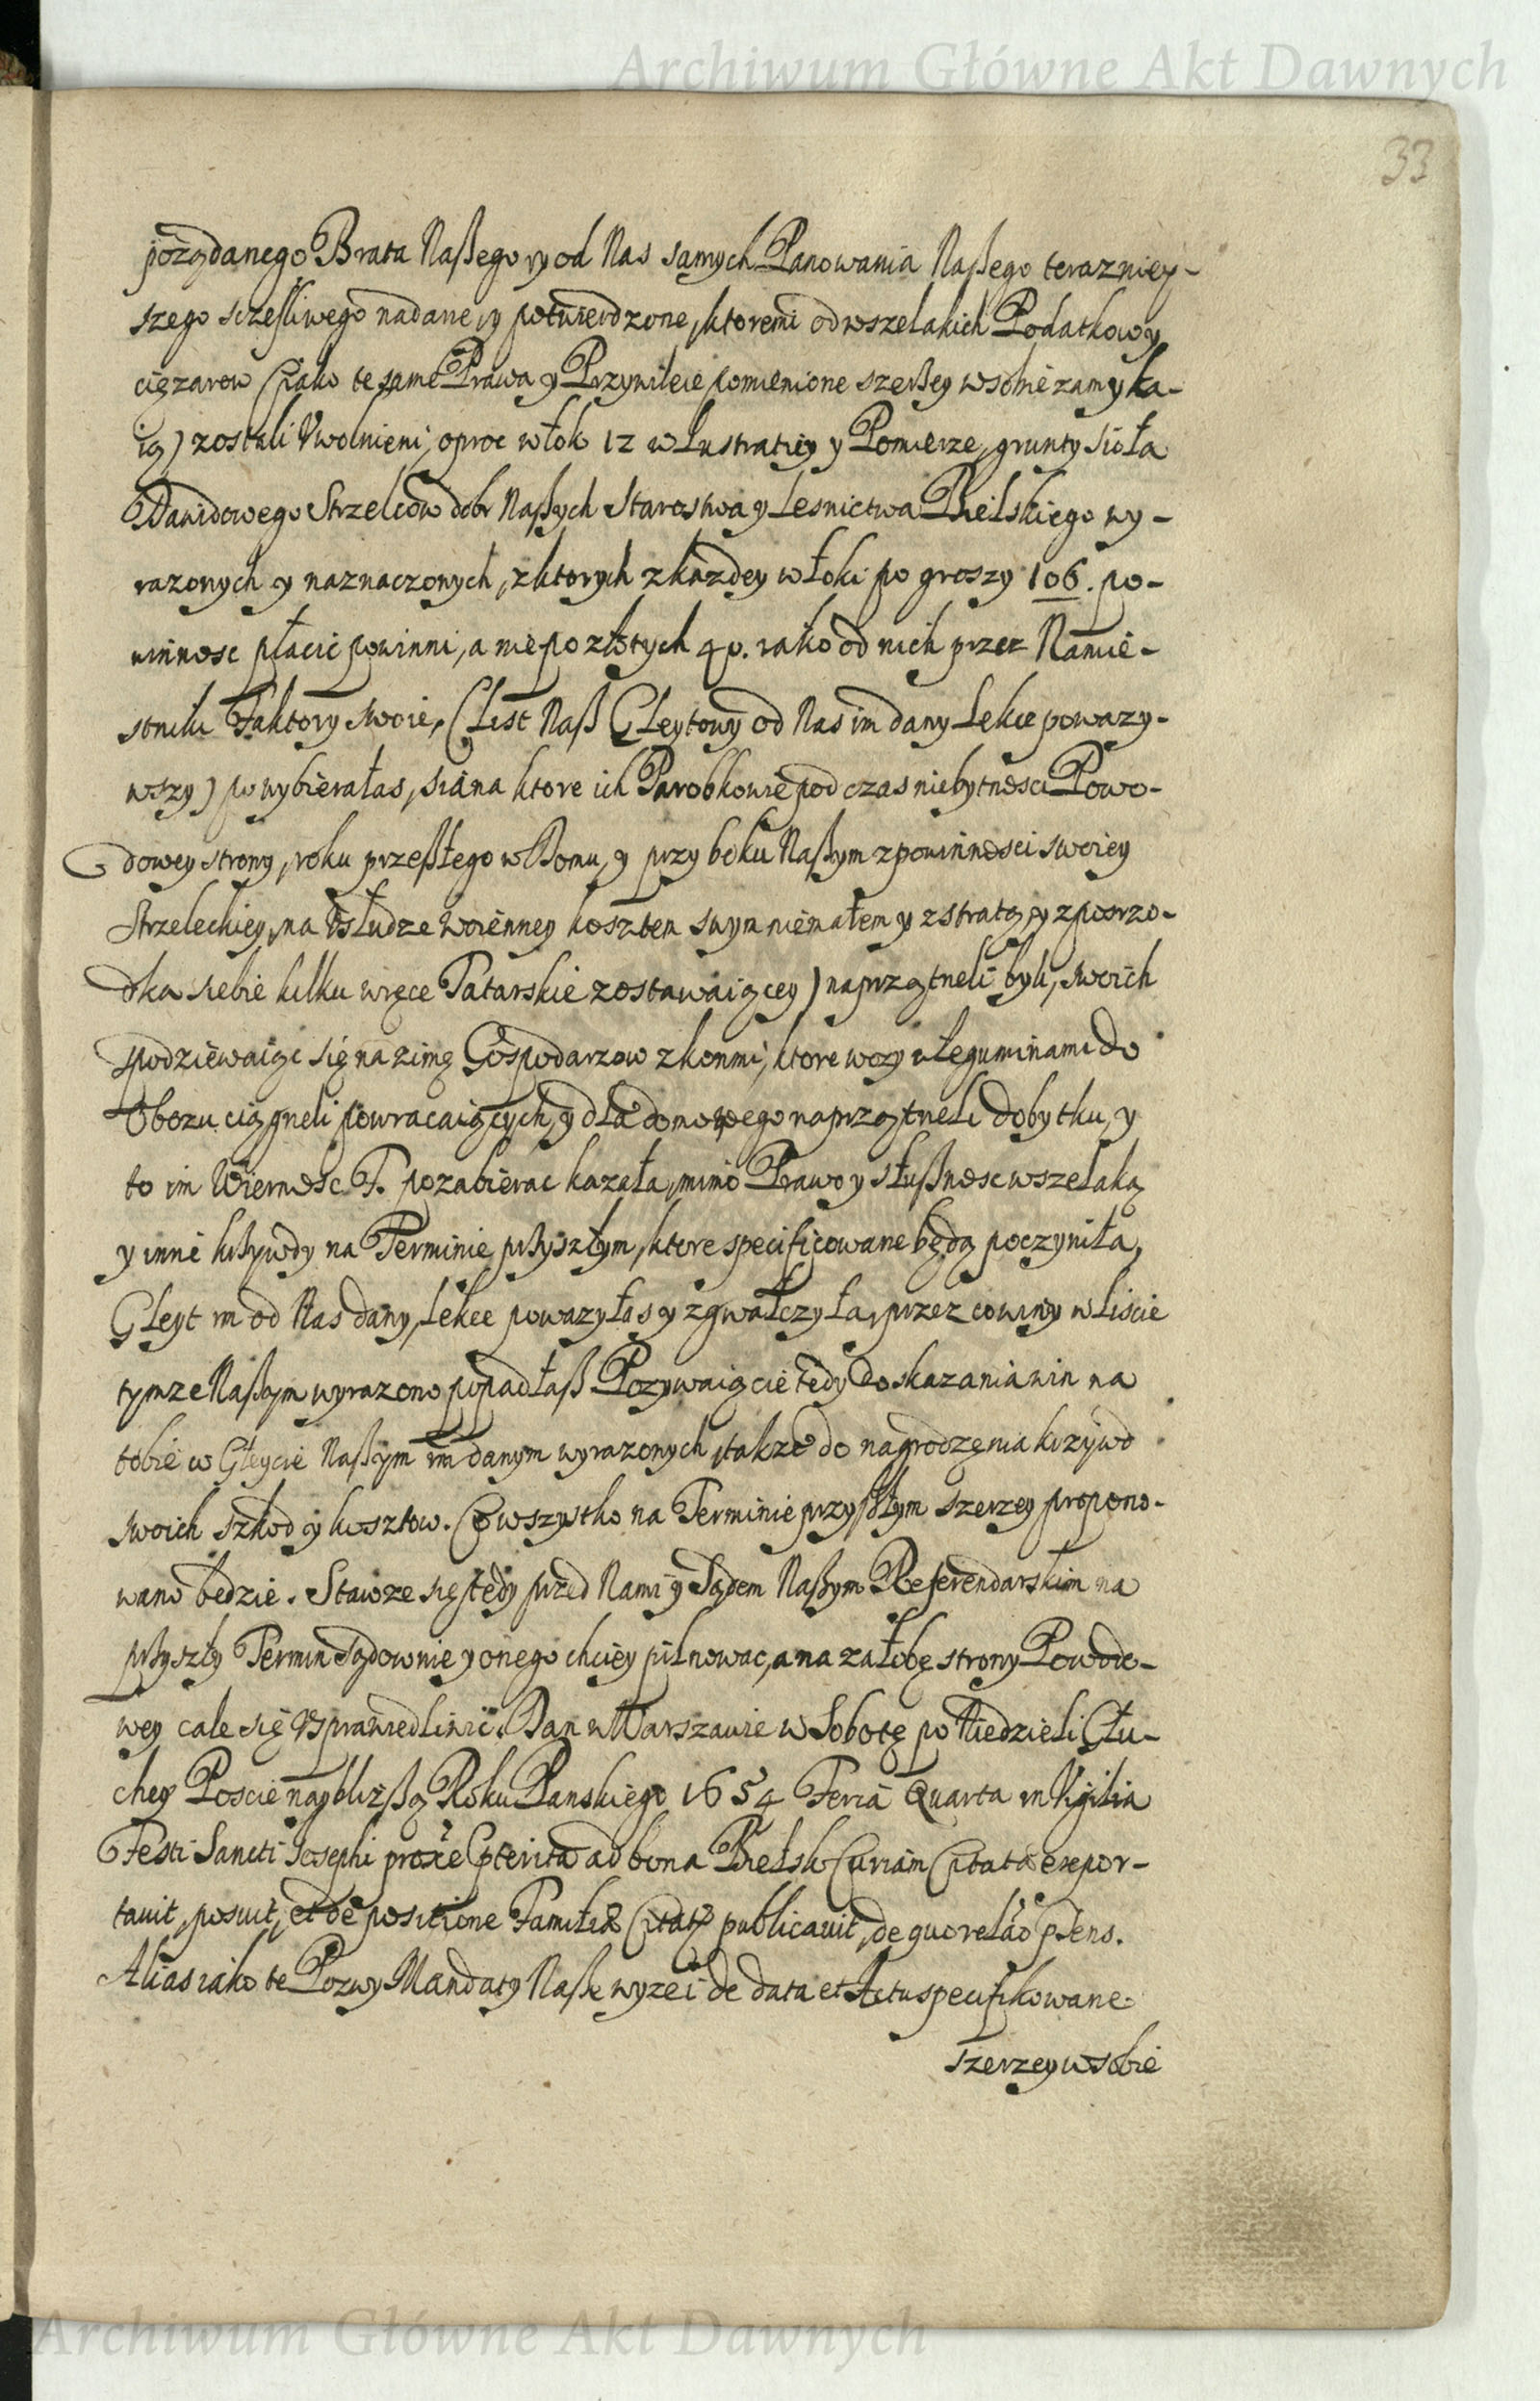 Archiwum Główne Akt Dawnych
33
pożądanego Brata Naßego y od Nas samych Panowania Naßego terazniey-
szego sczęsliwego nadane, y potwierdzone, ktoremi od wszelakich Podatkow y
ciężarow (iako te same Prawa y Przywileie pomienione szerßey w sobie zamyka-
ią) zostali Uwolnieni, oproc włok 12 w Lustratiey y Pomierze, grunty Sioła
Dawidowego Strzelcow dobr Naßych Starostwa y Lesnictwa Bielskiego wy-
razonych y naznaczonych, z ktorych z kazdey włoki po groszy 106. po-
winnosc płacic powinni, a nie po złotych 40. iako od nich przez Namie-
stniki Faktory swoie, (List Naß Gleytowy od Nas im dany Lekce powazy-
wszy) powybierałas, siana ktore ich Parobkowie pod czas niebytnosci Powo-
dowey strony, roku przeßłego w Domu, y przy boku Naßym z powinnosci swoiey
Strzeleckiey, na Usłudze woienney kosztem swym niemałem y z stratą, y z posrzo-
dka siebie kilku w ręce Tatarskie zostawaiącey) naprzątneli byli, swoich
spodziewaiąc się na zimę Gospodarzow z konmi, ktore wozy z Leguminami do
Obozu ciągneli powracaiących, y dla domowego naprzątneli dobytku, y
to im Wiernosc T. pozabierac kazała, mimo Prawo y słußnosc wszelaką
y inne krzywdy na Terminie przyszłym, ktore specificowane będą poczyniła,
Gleyt im od Nas dany, lekce powazyłas y zgwałczyła, przez co winy w liscie
tymze Naßym wyrazone popadłaß Pozywaią cie tedy do skazania win na
tobie w Gleycie Naßym im danym wyrazonych, takze do nagrodzęnia krzywd
swoich szkod y kosztow. Co wszystko na Terminie przyßłym szerzey propono-
wano będzie. Stawze się tedy przed Nami y Sądem Naßym Referendarskim na
przyszły Termin Sądownie y onego chciey pilnowac, a na załobę strony Powodo-
wey cale się Usprawiedliwic. Dan w Warszawie w Sobotę po Niedzieli Głu-
chey Poscie naybliżßą Roku Panskiego 1654 Feria Quarta in Vigilia
Festi Sancti Josephi proxe pterita ad bona Bielsk Curiam Citata expor-
tavit, posuit, et de positione Familiæ Citatæ publicavit, de quo relao pñs.
Alias iako te Pozwy Mandaty Naße wyzei de data et Actu specifikowane
szerzey w sobie
Archiwum Główne Akt Dawnych